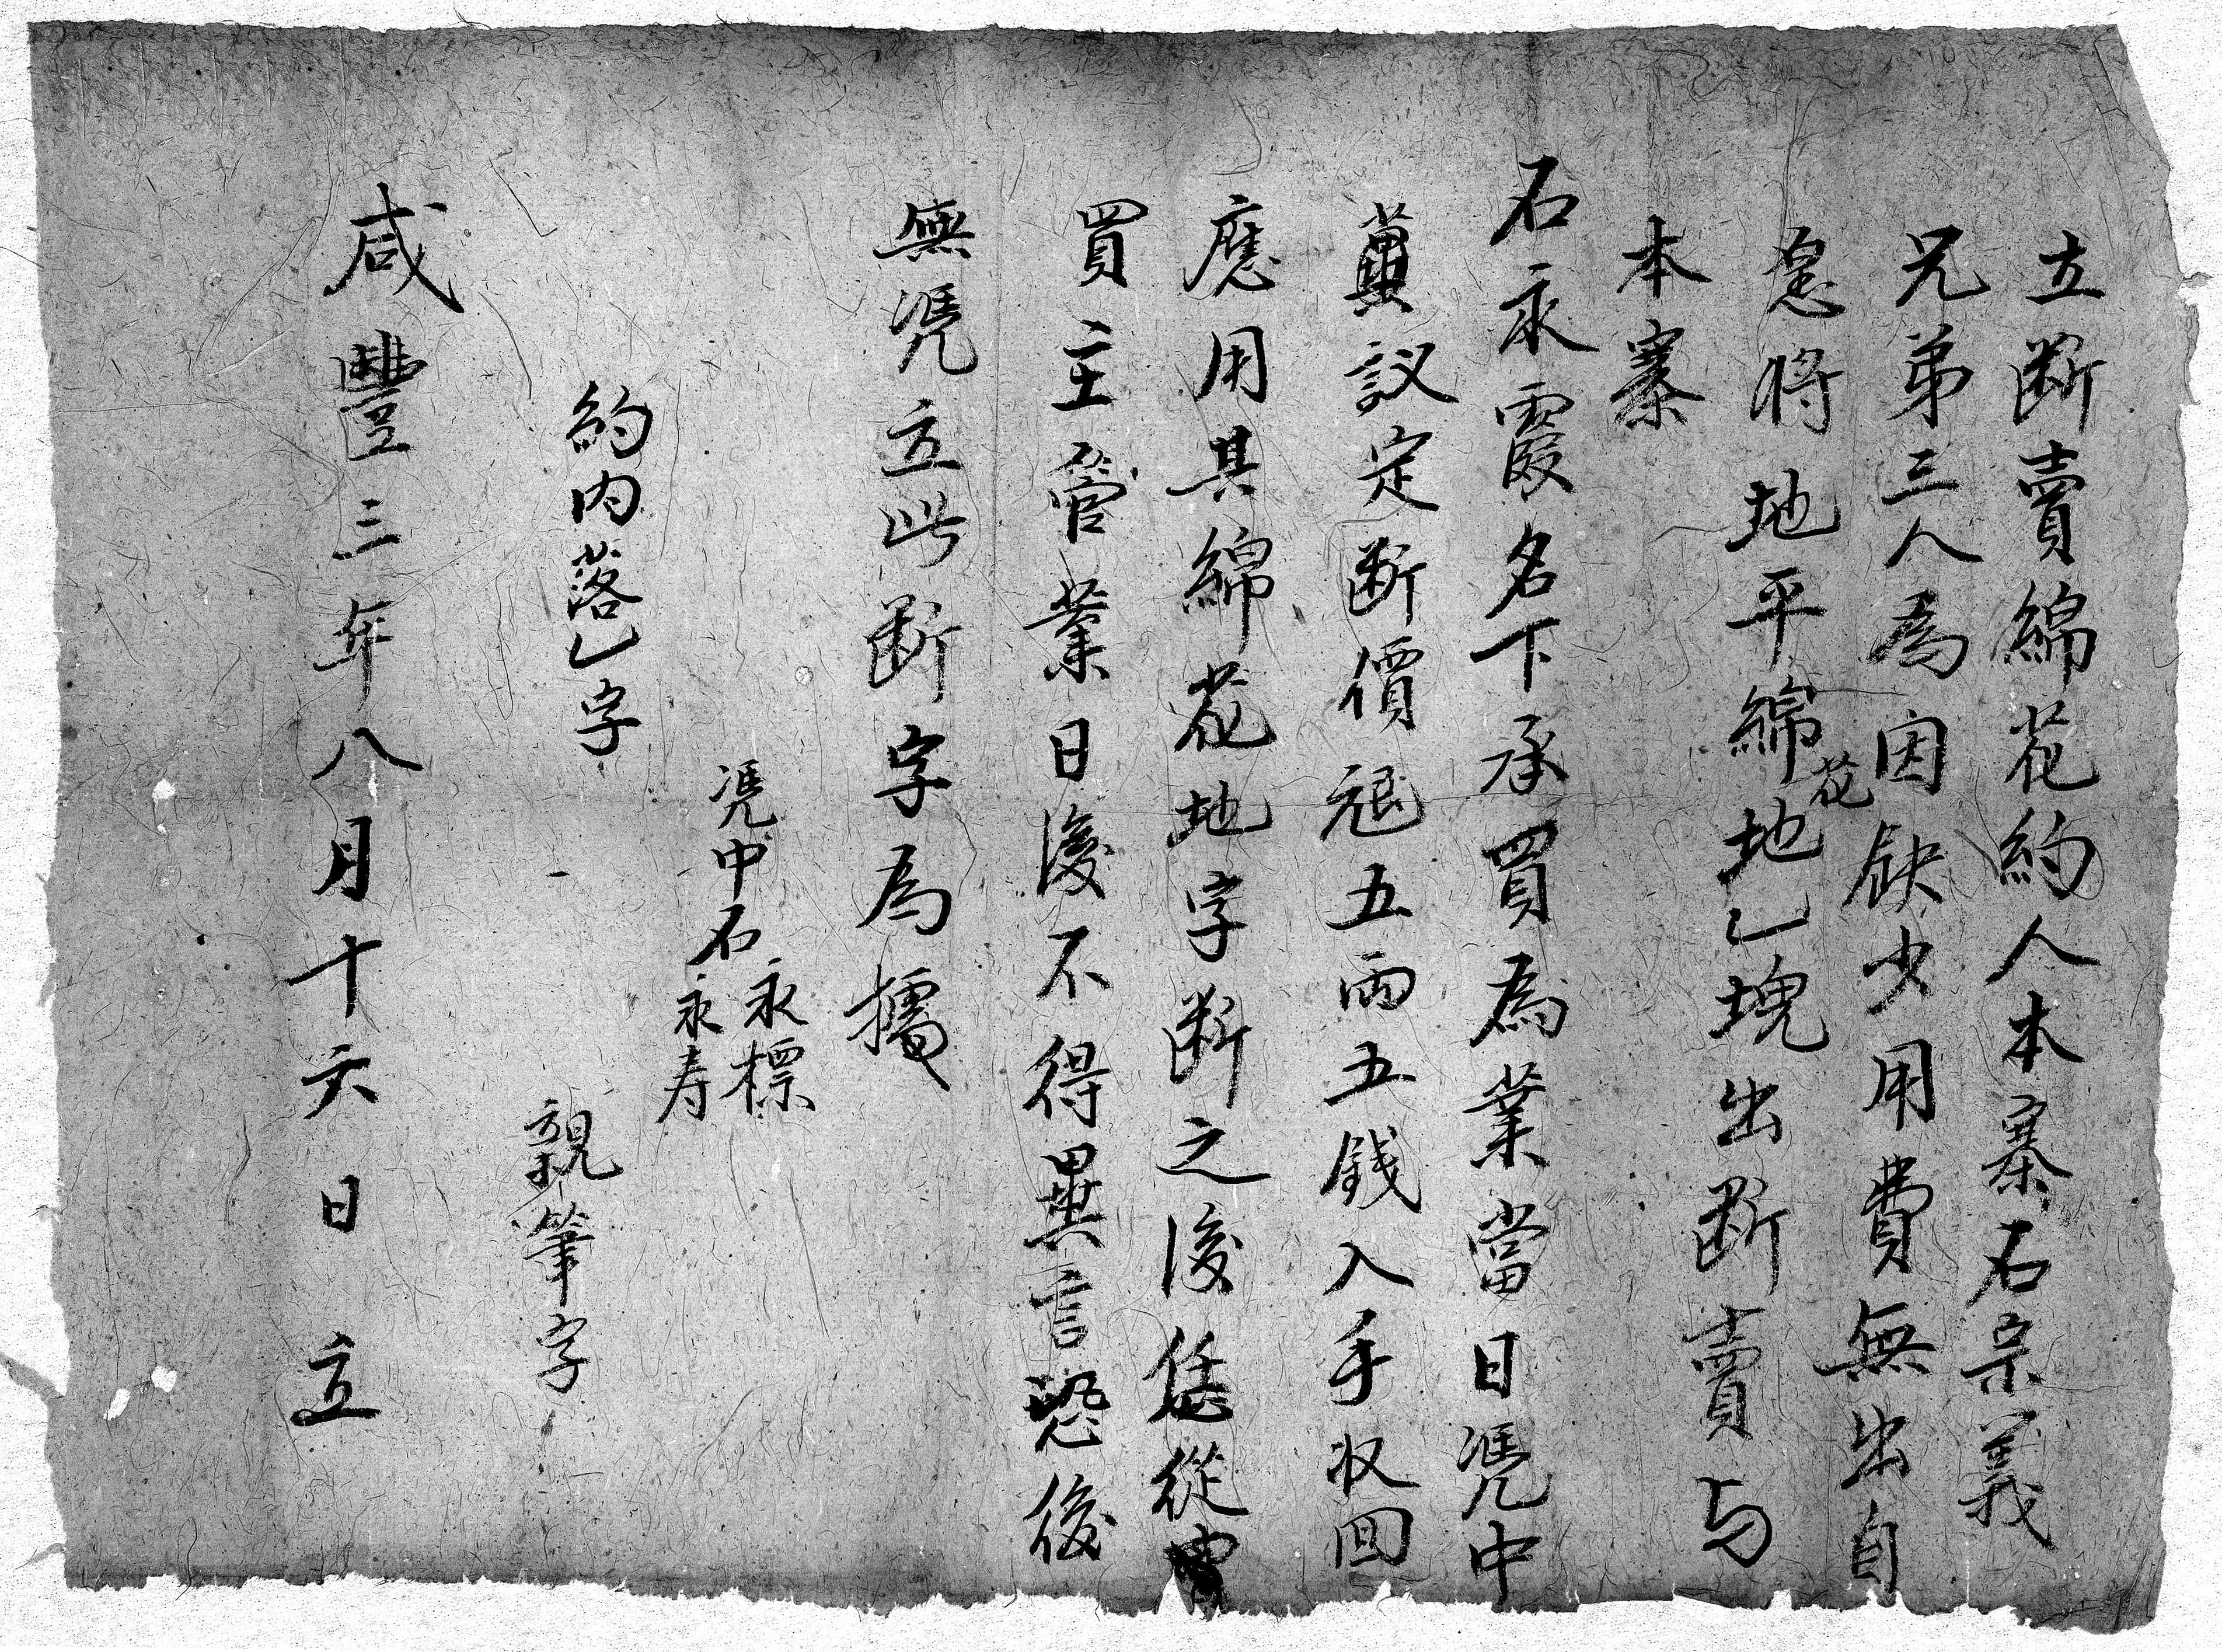 立断賣綿花約人本寨石宗義
兄弟三人為因缺少用費無出自
愿将地平綿花地乙塊出断賣与
本寨
石永霞名下承買為業當日凴中
議定断價冠五両五銭入手収回
應用其綿花地字断之後恁從
買主管業日後不得異言恐後
無凴立此断字為據
凴中石永標
永寿
約内落乙字
親筆字
咸豐三年八月十六日立